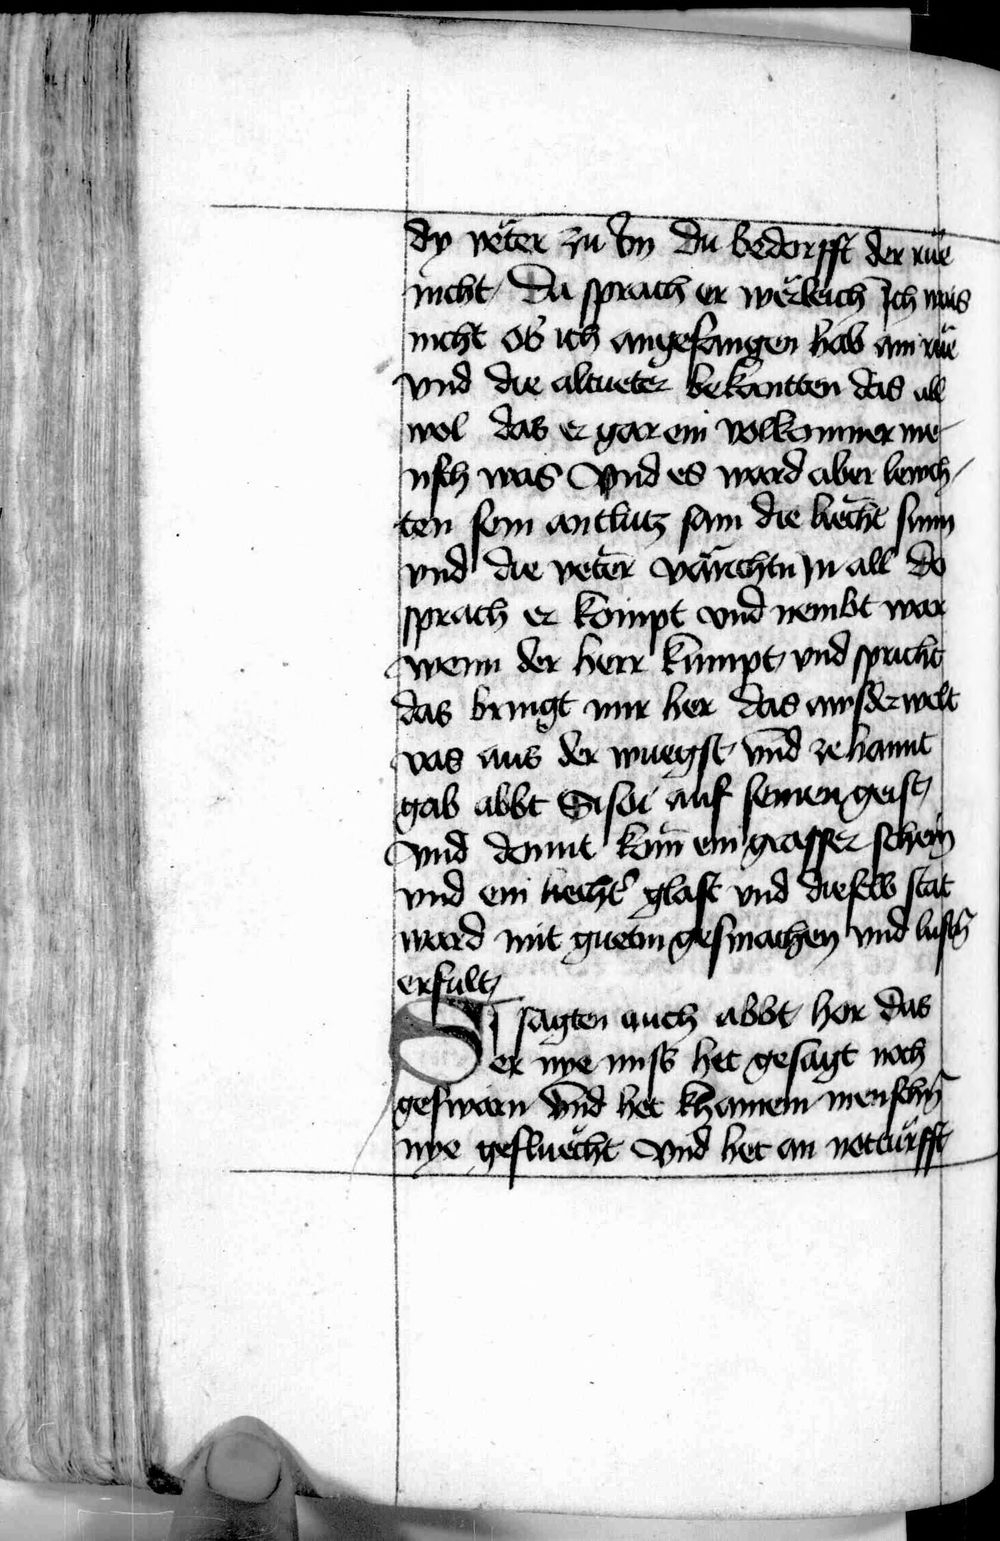 dy veter zu Im du bedorfft der rue
nicht Da sprach er werleich Ich wais
nicht ob ich angefangen hab ain rue
vnd die altueter bekantten das all
wol das er gar ein volkommer me
nsch was Vnd es ward aber lewch
ten sein antlutz sam die liecht sunn
vnd die veter varichtn In all do
sprach er kompt vnd nembt war
wenn der herr kumpt vnd spricht
das bringt mir her das ausderwelt
vas aus der wuegst vnd ze hannt
gab abbt Sisoi auf seinen geist
vnd damit kom ein grasser schein
vnd ein liecht' glast vnd dieselb stat
ward mit guetm gesmachen vnd lustn
erfult
Si sagten auch abbt hor das
er nye miss het gesagt noch
geswarn vnd het khainem menschn
nye gefluecht vnd het an notturfft